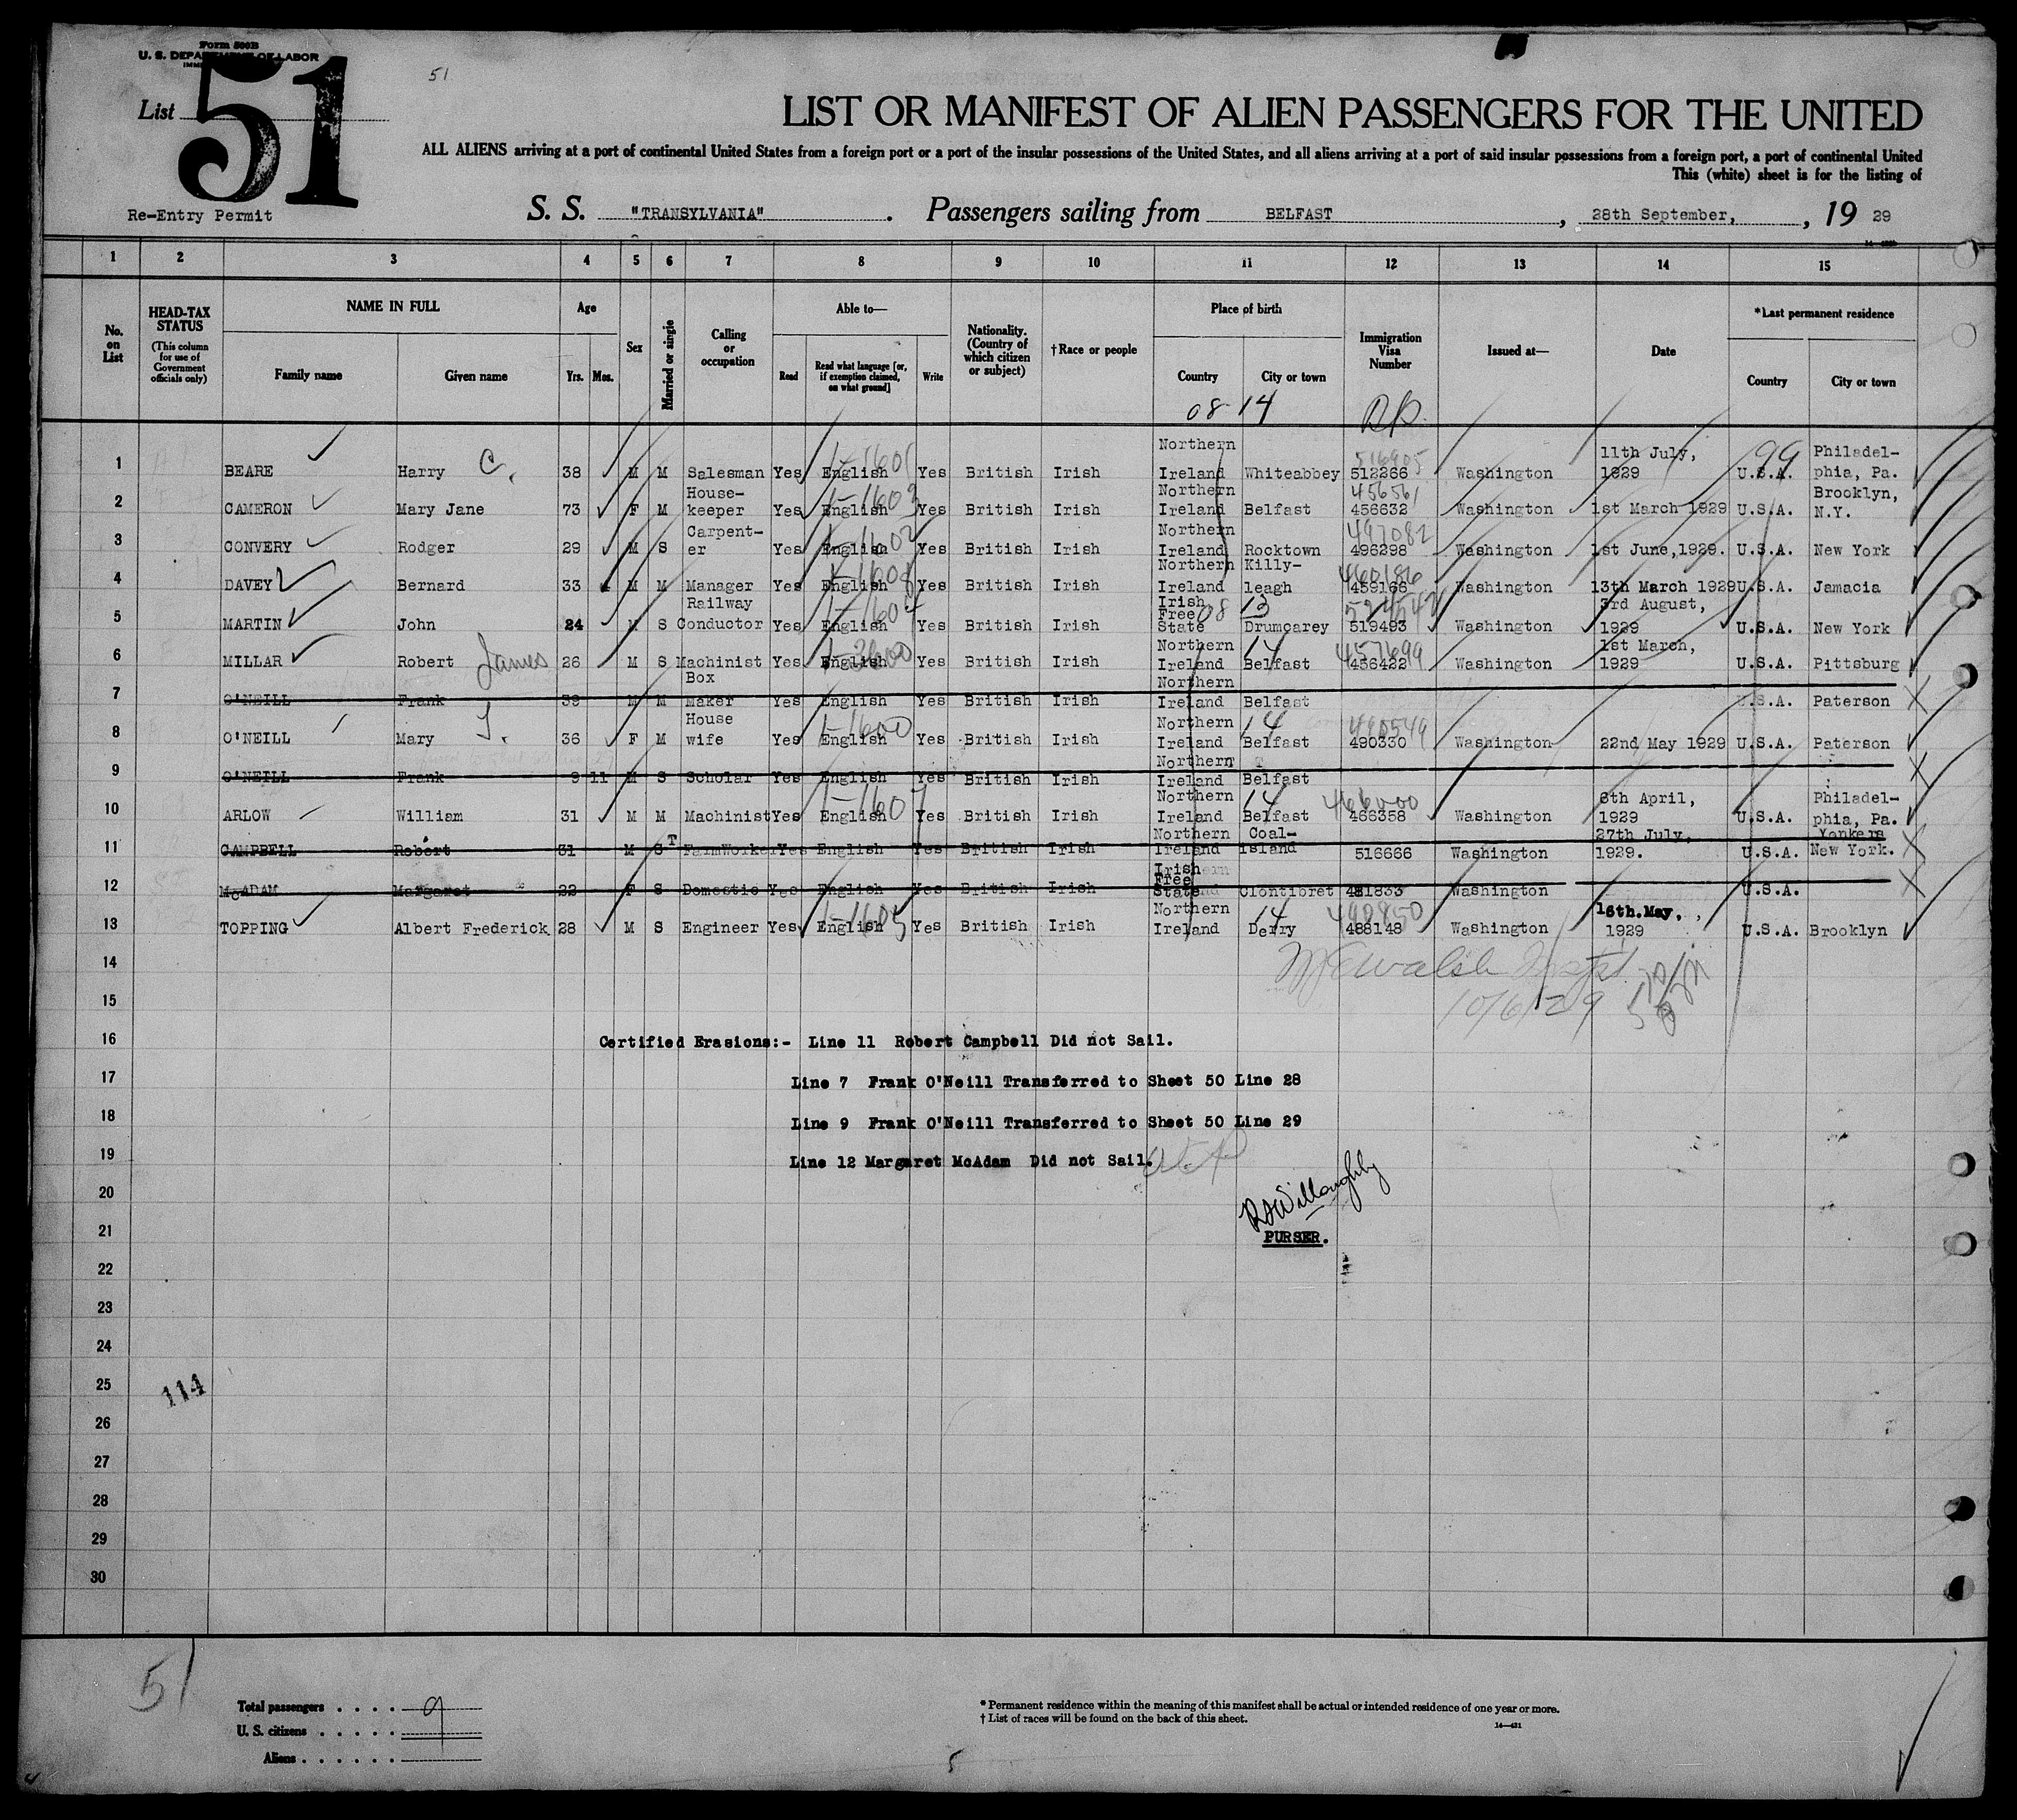 Form 500B
U. S. DEPARTMENT OF LABOR
List 51
51
Re-Entry Permit
LIST OR MANIFEST OF ALIEN PASSENGERS FOR THE UNITED
ALL ALIENS arriving at a port of continental United States from a foreign port or a port of the insular possessions of the United States, and all aliens arriving at a port of said insular possessions from a foreign port, a port of continental United
This (white) sheet is for the listing of
S. S. "TRANSYLVANIA". Passengers sailing from BELFAST, 28th September, , 19 29
1 2 3 4 5 6 7 8 9 10 11 12 13 14 15
No. on List
HEAD-TAX STATUS (This column for use of Government officials only)
NAME IN FULL Family name Given name
Age Yrs. Mos.
Sex
Married or single
Calling or occupation
Able to— Read Read what language [or, if exemption claimed, on what ground] Write
Nationality. (Country of which citizen or subject)
† Race or people
Place of birth Country City or town
Immigration Visa Number
Issued at—
Date
*Last permanent residence Country City or town
08 14
1 BEARE Harry C. 38 M M Salesman Yes English 1-1601 Yes British Irish Northern Ireland Whiteabbey 516905 512266 Washington 11th July, 1929 99 U.S.A. Philadel-phia, Pa.
2 CAMERON Mary Jane 73 F M House-keeper Yes English 1-1603 Yes British Irish Northern Ireland Belfast 456561 456632 Washington 1st March 1929 U.S.A. Brooklyn, N.Y.
3 CONVERY Rodger 29 M S Carpent-er Yes English 1-1602 Yes British Irish Northern Ireland Rocktown 497082 496298 Washington 1st June,1929. U.S.A. New York
4 DAVEY Bernard 33 M M Manager Yes English 1-1608 Yes British Irish Northern Ireland Killy-leagh 460186 459166 Washington 13th March 1929 U.S.A. Jamacia
5 MARTIN John 24 M S Railway Conductor Yes English 1-1604 Yes British Irish Irish Free State 08 13 Drumcarey 519493 Washington 3rd August, 1929 U.S.A. New York
6 MILLAR Robert James 26 M S Machinist Yes English Yes British Irish Northern Ireland 14 Belfast 457699 456422 Washington 1st March, 1929 U.S.A. Pittsburg
7 O'NEILL Frank 39 M M Box Maker Yes English Yes British Irish Northern Ireland Belfast U.S.A. Paterson X
8 O'NEILL Mary 36 F M House wife Yes English 1-1600 Yes British Irish Northern Ireland 14 Belfast 490549 490330 Washington 22nd May 1929 U.S.A. Paterson
9 O'NEILL Frank 9 11 M S Scholar Yes English Yes British Irish Northern Ireland Belfast X
10 ARLOW William 31 M M Machinist Yes English 1-1607 Yes British Irish Northern Ireland 14 Belfast 466000 466358 Washington 6th April, 1929 U.S.A. Philadel-phia, Pa.
11 CAMPBELL Robert 31 M S FarmWorker Yes English Yes British Irish Northern Ireland Coal-island 516666 Washington 27th July, 1929. U.S.A. Yonkers New York. X
12 McADAM Margaret 22 F S Domestic Yes English Yes British Irish Irish Free State Clontibret 481833 Washington U.S.A. X
13 TOPPING Albert Frederick 28 M S Engineer Yes English 1-1605 Yes British Irish Northern Ireland 14 Derry 490850 488148 Washington 16th.May, 1929 U.S.A. Brooklyn
14
15 10/6/29
16 Certified Erasions:- Line 11 Robert Campbell Did not Sail.
17 Line 7 Frank O'Neill Transferred to Sheet 50 Line 28
18 Line 9 Frank O'Neill Transferred to Sheet 50 Line 29
19 Line 12 Margaret McAdam Did not Sail.
20 Willoughby
21 PURSER.
22
23
24
25 114
26
27
28
29
30
51
Total passengers . . . . 9
U. S. citizens . . . . .
Aliens . . . . . .
* Permanent residence within the meaning of this manifest shall be actual or intended residence of one year or more.
† List of races will be found on the back of this sheet.
14—431
5